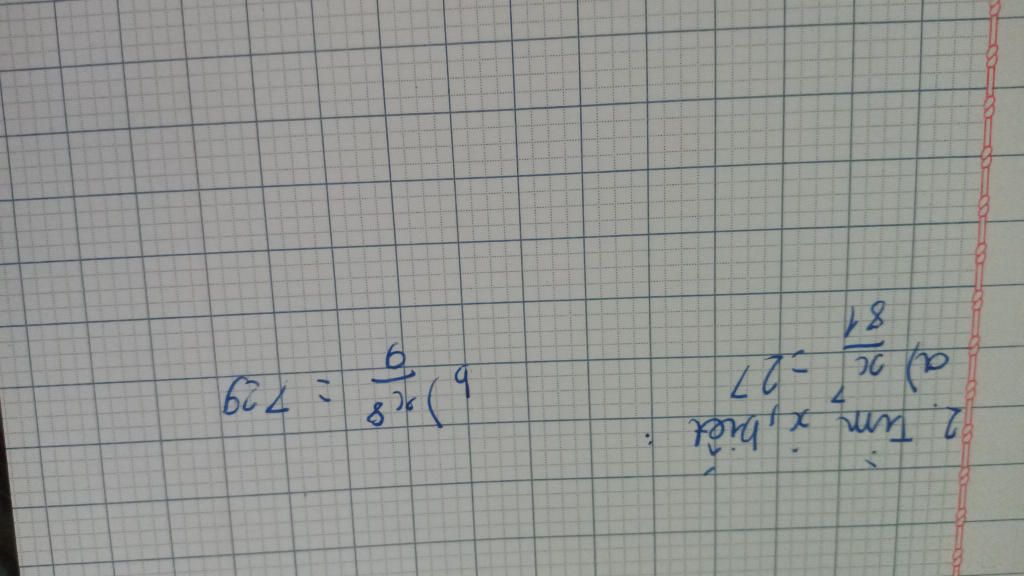 2. Tìm x, biết :
a) x⁷/81 = 27 b) x⁸/9 = 729